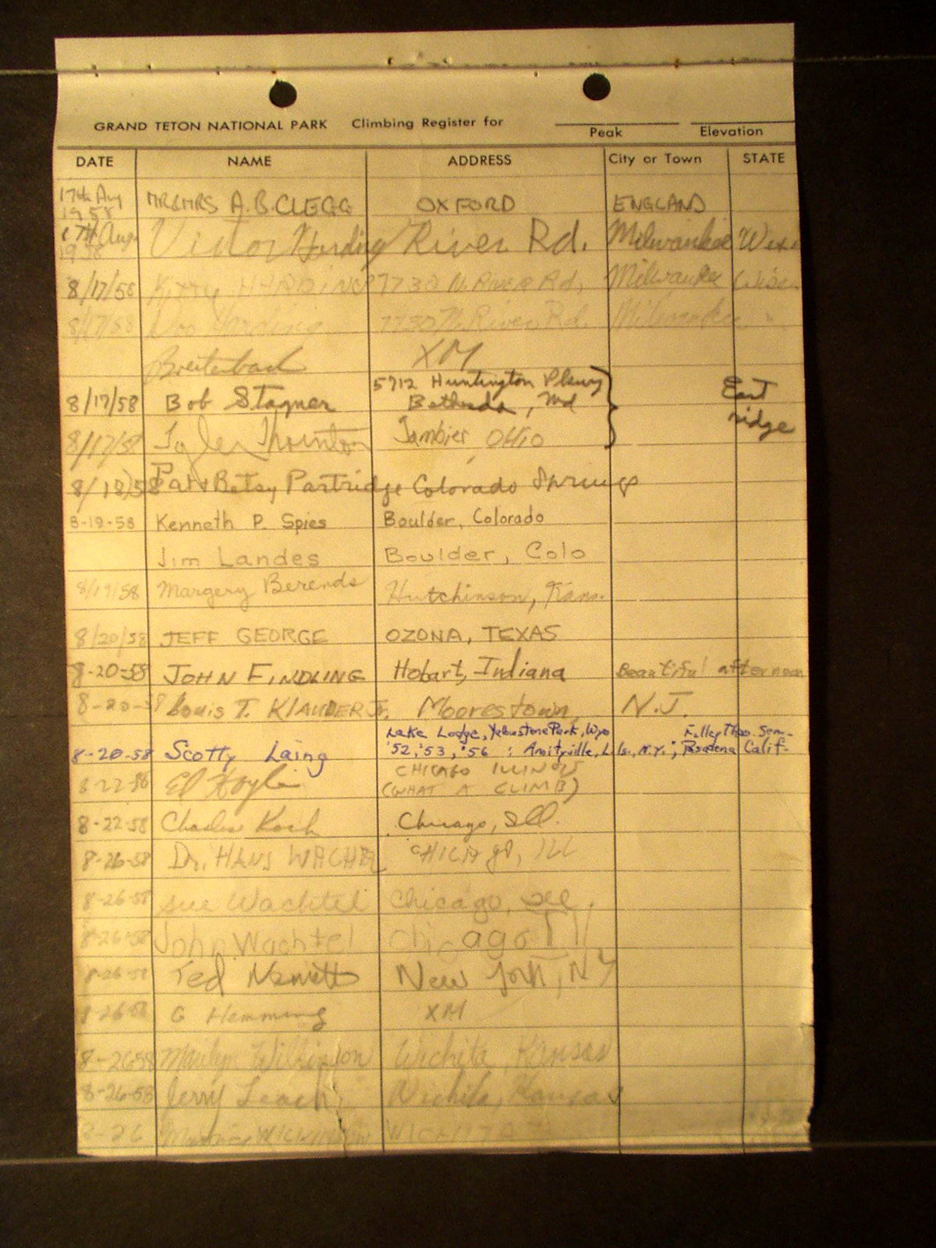 GRAND TETON NATIONAL PARK Climbing Register for
Peak Elevation
DATE NAME ADDRESS City or Town STATE
17th Aug 1958 MR & MRS A.B. CLEGG OXFORD ENGLAND
17th Aug 1958 Victor Harding River Rd. Milwaukee Wisc
8/17/58 Kitty HARDING 7730 N. River Rd, Milwaukee Wisc
8/17/58 Harding 7730 N. River Rd. Milwaukee "
Breitenbach XM
5712 Huntington Pkwy
8/17/58 Bob Stagner Bethesda, Md East
8/17/58 Thornton Gambier OHIO ridge
8/18/58 Pat & Betsy Partridge Colorado Springs
8-19-58 Kenneth P. Spies Boulder, Colorado
Jim Landes Boulder, Colo
8/19/58 Margery Berends Hutchinson, Kans.
8/20/58 JEFF GEORGE OZONA, TEXAS
8-20-58 JOHN FINDLING Hobart, Indiana Beautiful afternoon
8-20-58 Louis T. KLAUDER Jr. Moorestown, N.J.
Lake Lodge, Yellowstone Park, Wyo Fuller Theo. Sem.-
8-20-58 Scotty Laing '52, '53, '56 ; Amityville, L. Is., N.Y.; Pasadena Calif-
CHICAGO ILLINOIS
8-22-58 Ed (WHAT A CLIMB)
8-22-58 Charles Koch Chicago, Ill.
8-26-58 Dr. HANS WACHTEL CHICAgO, ILL
8-26-58 Sue Wachtel Chicago, Ill.
8-26-58 John Wachtel Chicago Ill
8-26-58 Ted New York, NY
8-26-58 G Hemming XM
8-26-58 Marilyn Wilkinson Wichita, Kansas
8-26-58 Jerry Leach Wichita, Kansas
8-26 WICHITA